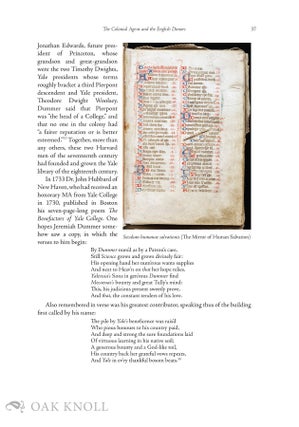 The Colonial Agent and the English Donors
37
Jonathan Edwards, future pres-
ident of Princeton, whose
grandson and great-grandson
were the two Timothy Dwights,
Yale presidents whose terms
roughly bracket a third Pierpont
descendent and Yale president,
Theodore Dwight Woolsey.
Dummer said that Pierpont
was "the head of a College," and
that no one in the colony had
"a fairer reputation or is better
esteemed." Together, more than
any others, these two Harvard
men of the seventeenth century
had founded and grown the Yale
library of the eighteenth century.
In 1733 Dr. John Hubbard of
New Haven, who had received an
honorary MA from Yale College
in 1730, published in Boston
his seven-page-long poem The
Benefactors of Yale College. One
hopes Jeremiah Dummer some-
how saw a copy, in which the
verses to him begin:
Speculum humanae salvationis (The Mirror of Human Salvation)
By Dummer nurs'd as by a Parent's care,
Still Science grows and grows divinely fair:
His opening hand her numerous wants supplies
And next to Heav'n on that her hope relies.
Fav'ring
Mæcenas's bounty and great Tully's mind:
This, his judicious present sweetly prove,
And that, the constant tenders of his love.
Also remembered in verse was his greatest contributor, speaking thus of the building
first called by his name:
The pile by Yale's beneficence was rais'd
Who pious honours to his country paid,
And deep and strong the sure foundations laid
Of virtuous learning in his native soil;
A generous bounty and a God-like toil,
His country back her grateful vows repeats,
And Yale in ev'ry thankful bosom beats.
OAK KNOLL